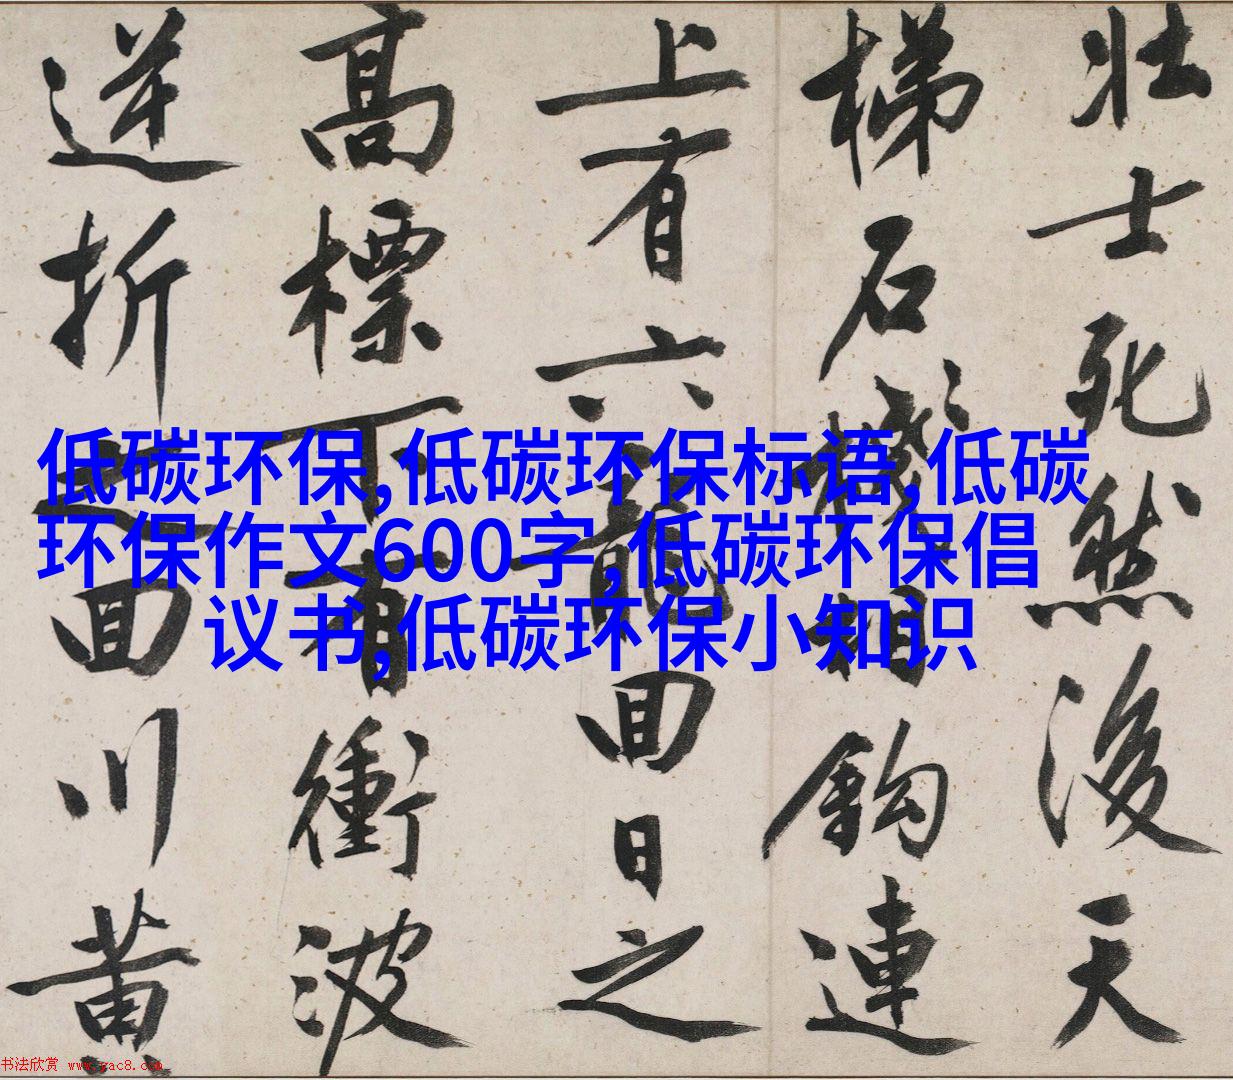 壯士死然後天
梯石棧相鉤連
上有六龍回日之
高標下有衝波
逆折之回川黃
低碳环保,低碳环保标语,低碳
环保作文600字,低碳环保倡
议书,低碳环保小知识
书法欣赏 www.yac8.com